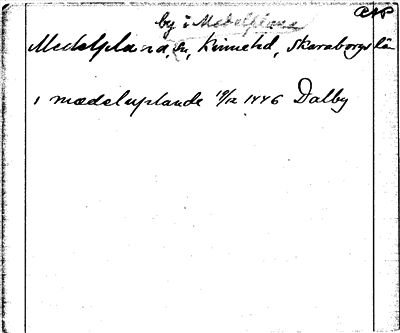 by i Medelplana
Medelplana, sn, Kinne hd, Skaraborgs län
i mædeluplande 19/12 1446 Dalby